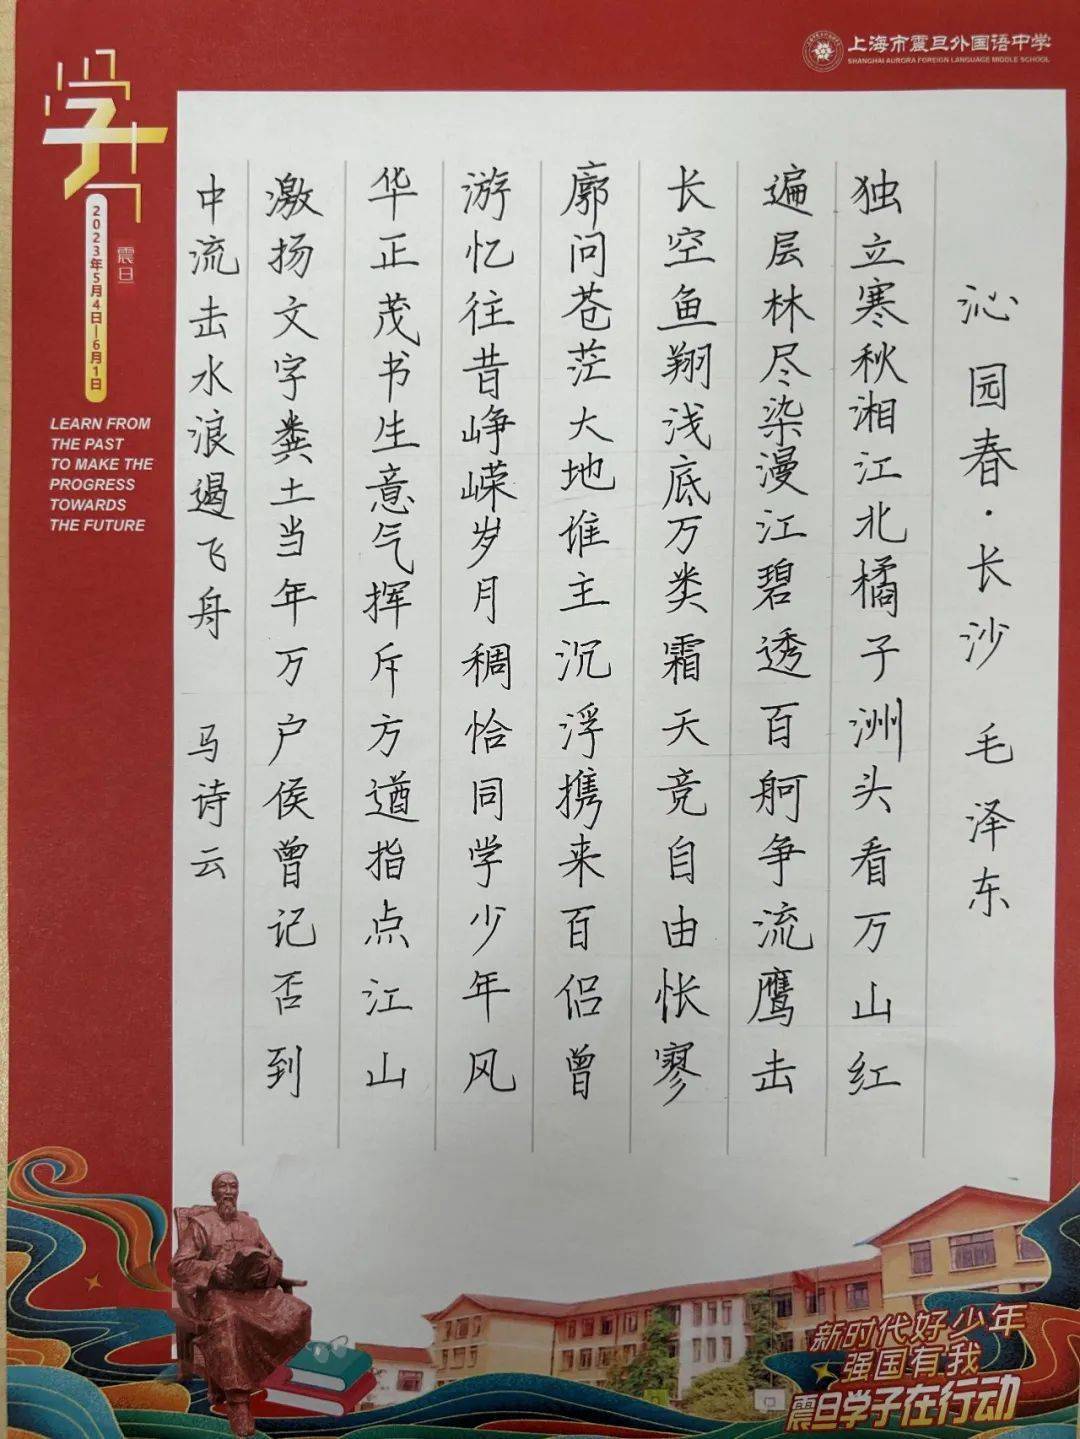 上海市震旦外国语中学
SHANGHAI AURORA FOREIGN LANGUAGE MIDDLE SCHOOL
学
震旦
2023年5月4日—6月1日
LEARN FROM
THE PAST
TO MAKE THE
PROGRESS
TOWARDS
THE FUTURE
沁园春·长沙 毛泽东
独立寒秋湘江北橘子洲头看万山红
遍层林尽染漫江碧透百舸争流鹰击
长空鱼翔浅底万类霜天竞自由怅寥
廓问苍茫大地谁主沉浮携来百侣曾
游忆往昔峥嵘岁月稠恰同学少年风
华正茂书生意气挥斥方遒指点江山
激扬文字粪土当年万户侯曾记否到
中流击水浪遏飞舟 马诗云
新时代好少年
强国有我
震旦学子在行动